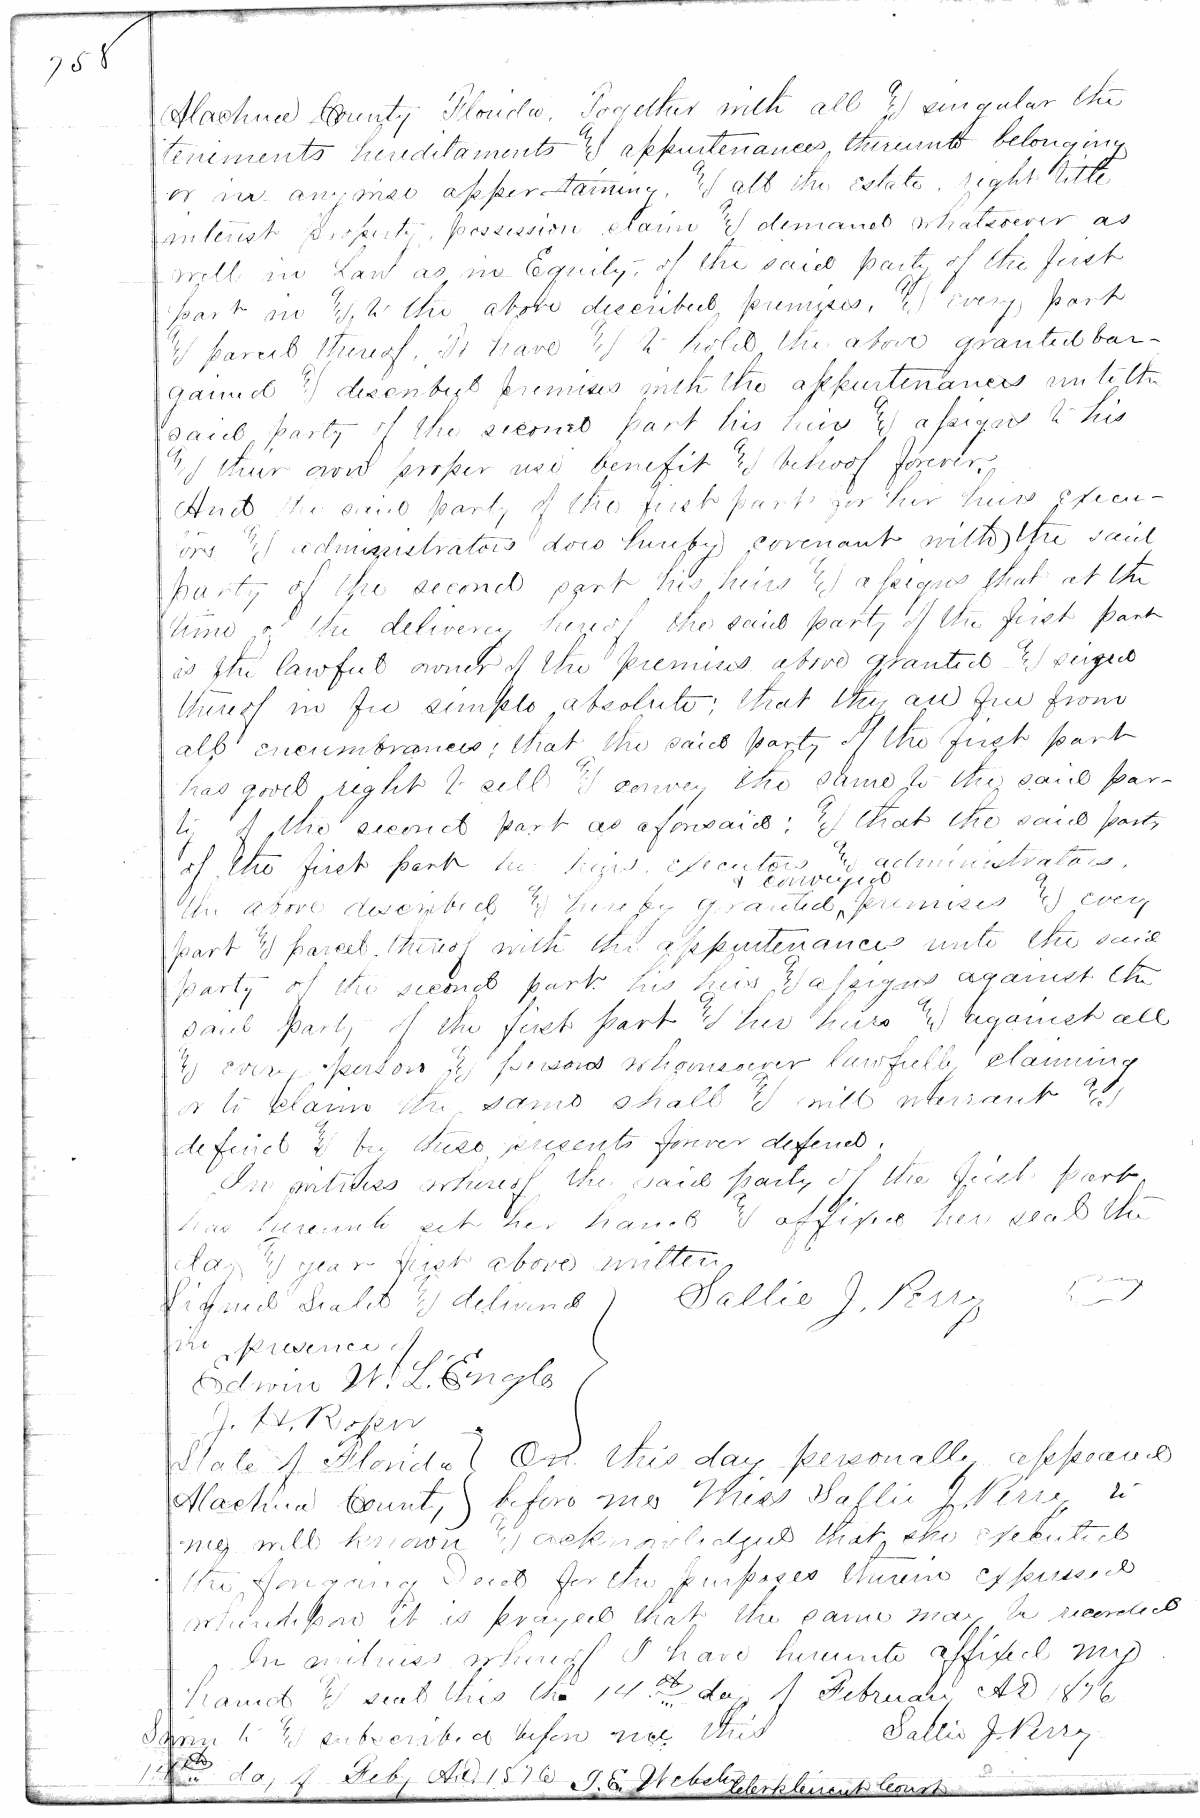 758
Alachua County Florida. Together with all & singular the
tenements hereditaments & appurtenances thereunto belonging
or in anywise appertaining. & all the estate. right title
interest property, possession claim & demand whatsoever as
well in Law as in Equity, of the said party of the first
part in & to the above described premises, & every part
& parcel thereof. To have & to hold the above granted bar-
gained & described premises with the appurtenances unto the
said party of the second part his heirs & assigns to his
& their own proper use benefit & behoof forever.
And the said party of the first part for her heirs execu-
tors & administrators does hereby covenant with the said
party of the second part his heirs & assigns that at the
time of the delivery hereof the said party of the first part
is the lawful owner of the premises above granted & seized
thereof in fee simple absolute; that they are free from
all encumbrances; that the said party of the first part
has good right to sell & convey the same to the said par-
ty of the second part as aforesaid; & that the said party
of the first part her heirs. executors & administrators.
& conveyed
the above described & hereby granted, premises & every
part & parcel thereof with the appurtenances unto the said
party of the second part his heirs & assigns against the
said party of the first part & her heirs & against all
& every person & persons whomsoever lawfully claiming
or to claim the same shall & will warrant &
defend & by these presents forever defend.
In witness whereof the said party of the first part
has hereunto set her hand & affixed her seal the
day & year first above written
Signed Sealed & delivered } Sallie J. Perry
in presence of
Edwin W. L'Engle
J. H. Roper
State of Florida } On this day personally appeared
Alachua County } before me Miss Sallie J. Perry to
me well known & acknowledged that she executed
the foregoing Deed for the purposes therein expressed
whereupon it is prayed that the same may be recorded
In witness whereof I have hereunto affixed my
hand & seal this the 14th day of February AD 1876
Sworn to & subscribed before me this Sallie J. Perry
14th day of Feby AD 1876 J. E. Webster Clerk Circuit Court